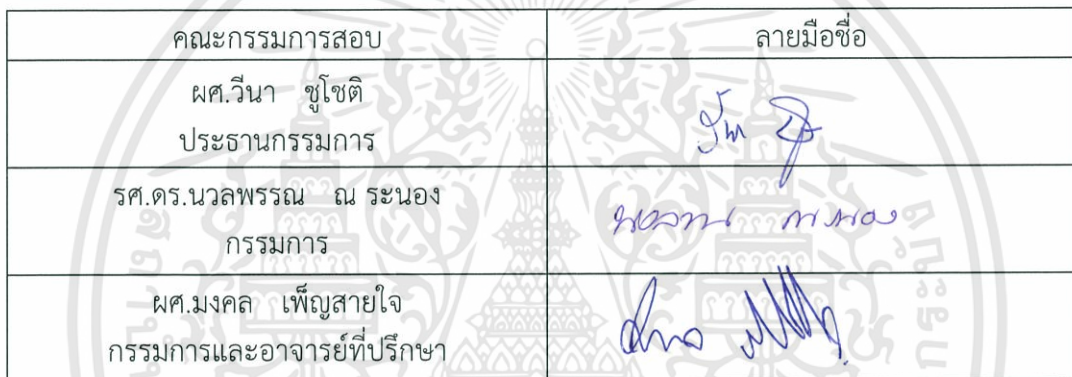 คณะกรรมการสอบ ลายมือชื่อ
ผศ.วีนา ชูโชติ
ประธานกรรมการ
รศ.ดร.นวลพรรณ ณ ระนอง
กรรมการ
ผศ.มงคล เพ็ญสายใจ
กรรมการและอาจารย์ที่ปรึกษา